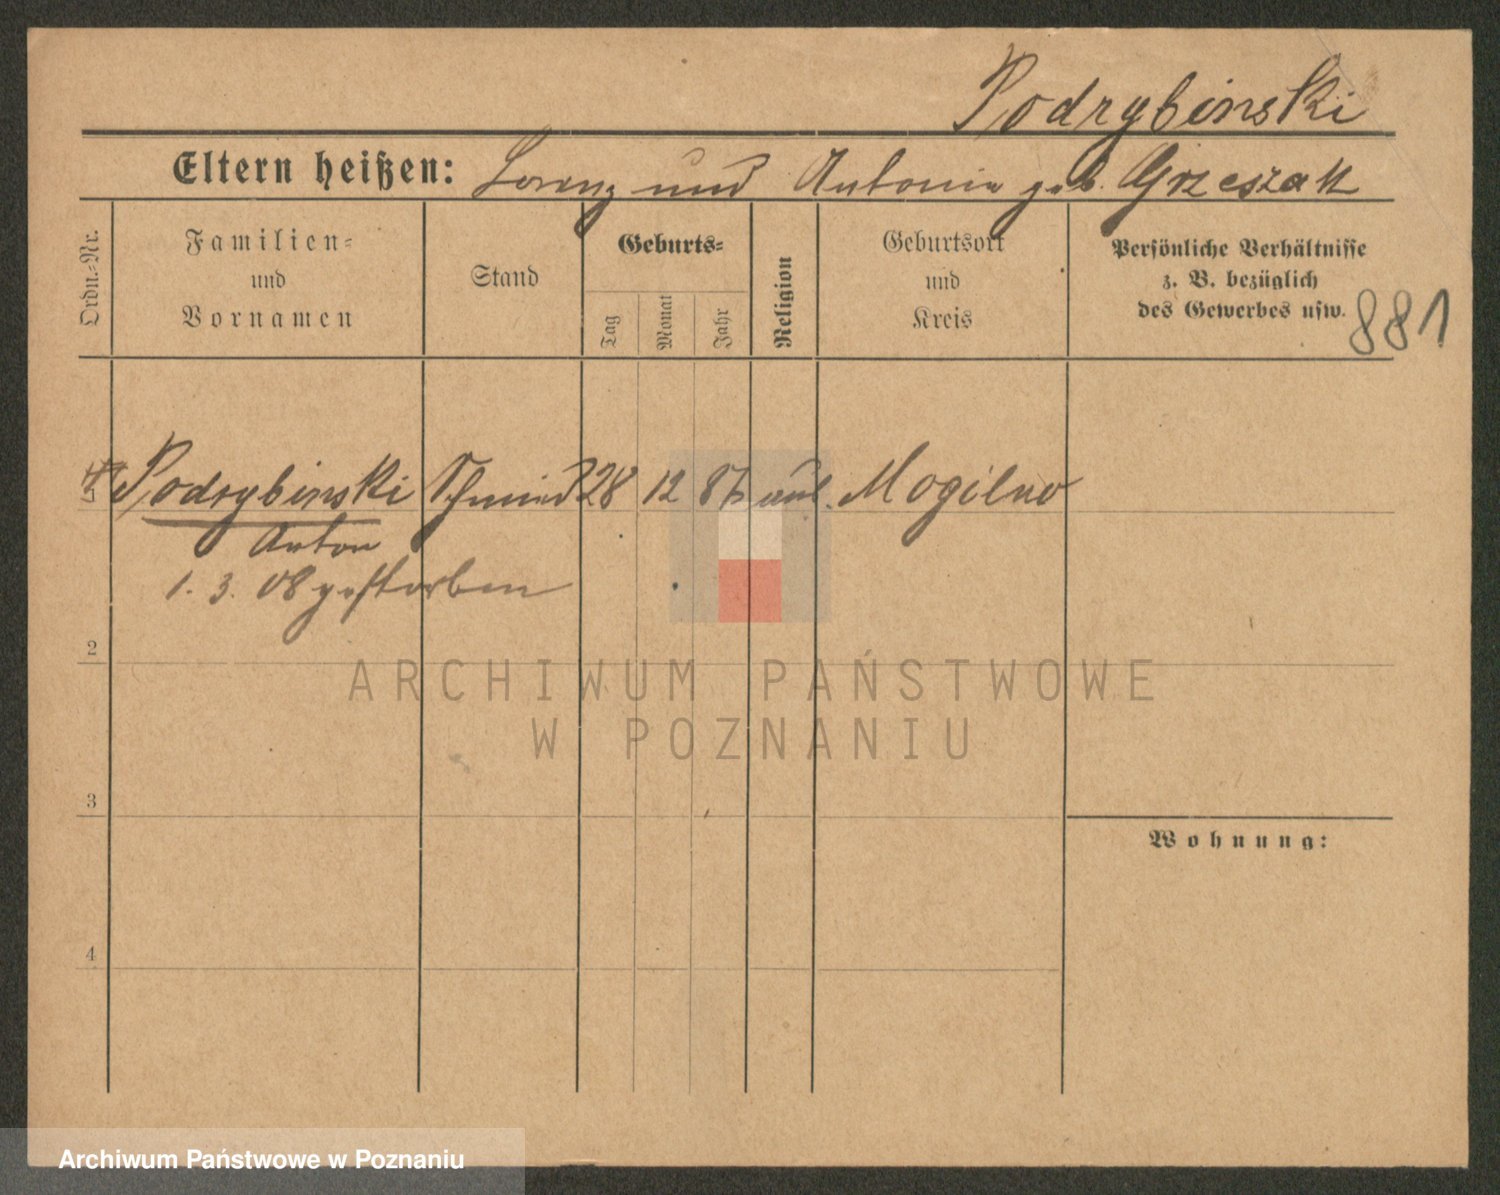 Podrybinski
Eltern heißen: Lorenz und Antonie geb. Grzeszak
Ordn.-Nr.
Familien-
und
Vornamen
Stand
Geburts-
Tag
Monat
Jahr
Religion
Geburtsort
und
Kreis
Persönliche Verhältnisse
z. B. bezüglich
des Gewerbes usw.
881
Podrybinski Schmied 28 12 87 Mogilno
Anton
1. 3. 08 gestorben
2
3
4
Wohnung:
ARCHIWUM PAŃSTWOWE
W POZNANIU
Archiwum Państwowe w Poznaniu